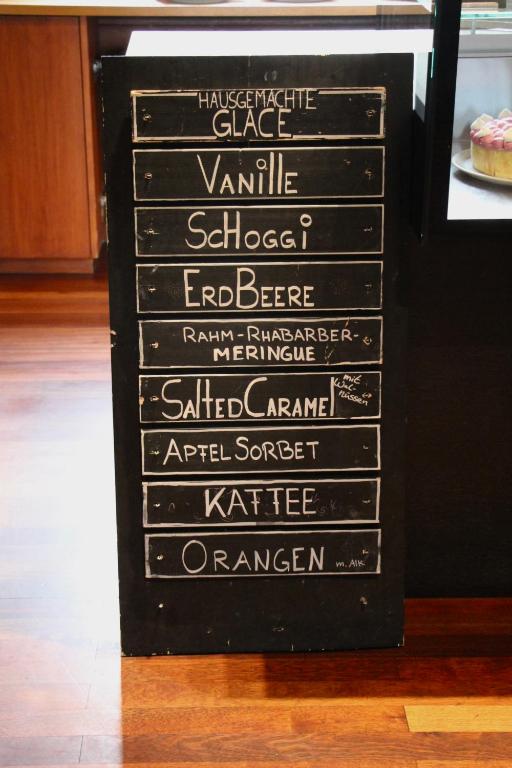 HAUSGEMACHTE
GLACE
VANIllE
ScHoGGi
ERDBEERE
RAHM-RHABARBER-
MERINGUE
SAlTED CARAMEl
mit
Wal-
nüssen
APFEL SORBET
KAFFEE
ORANGEN m. Alk